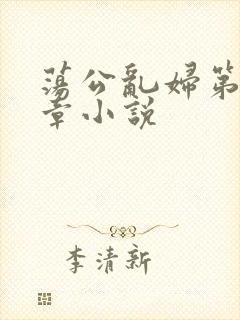 蕩公亂婦第
章小說
李清新